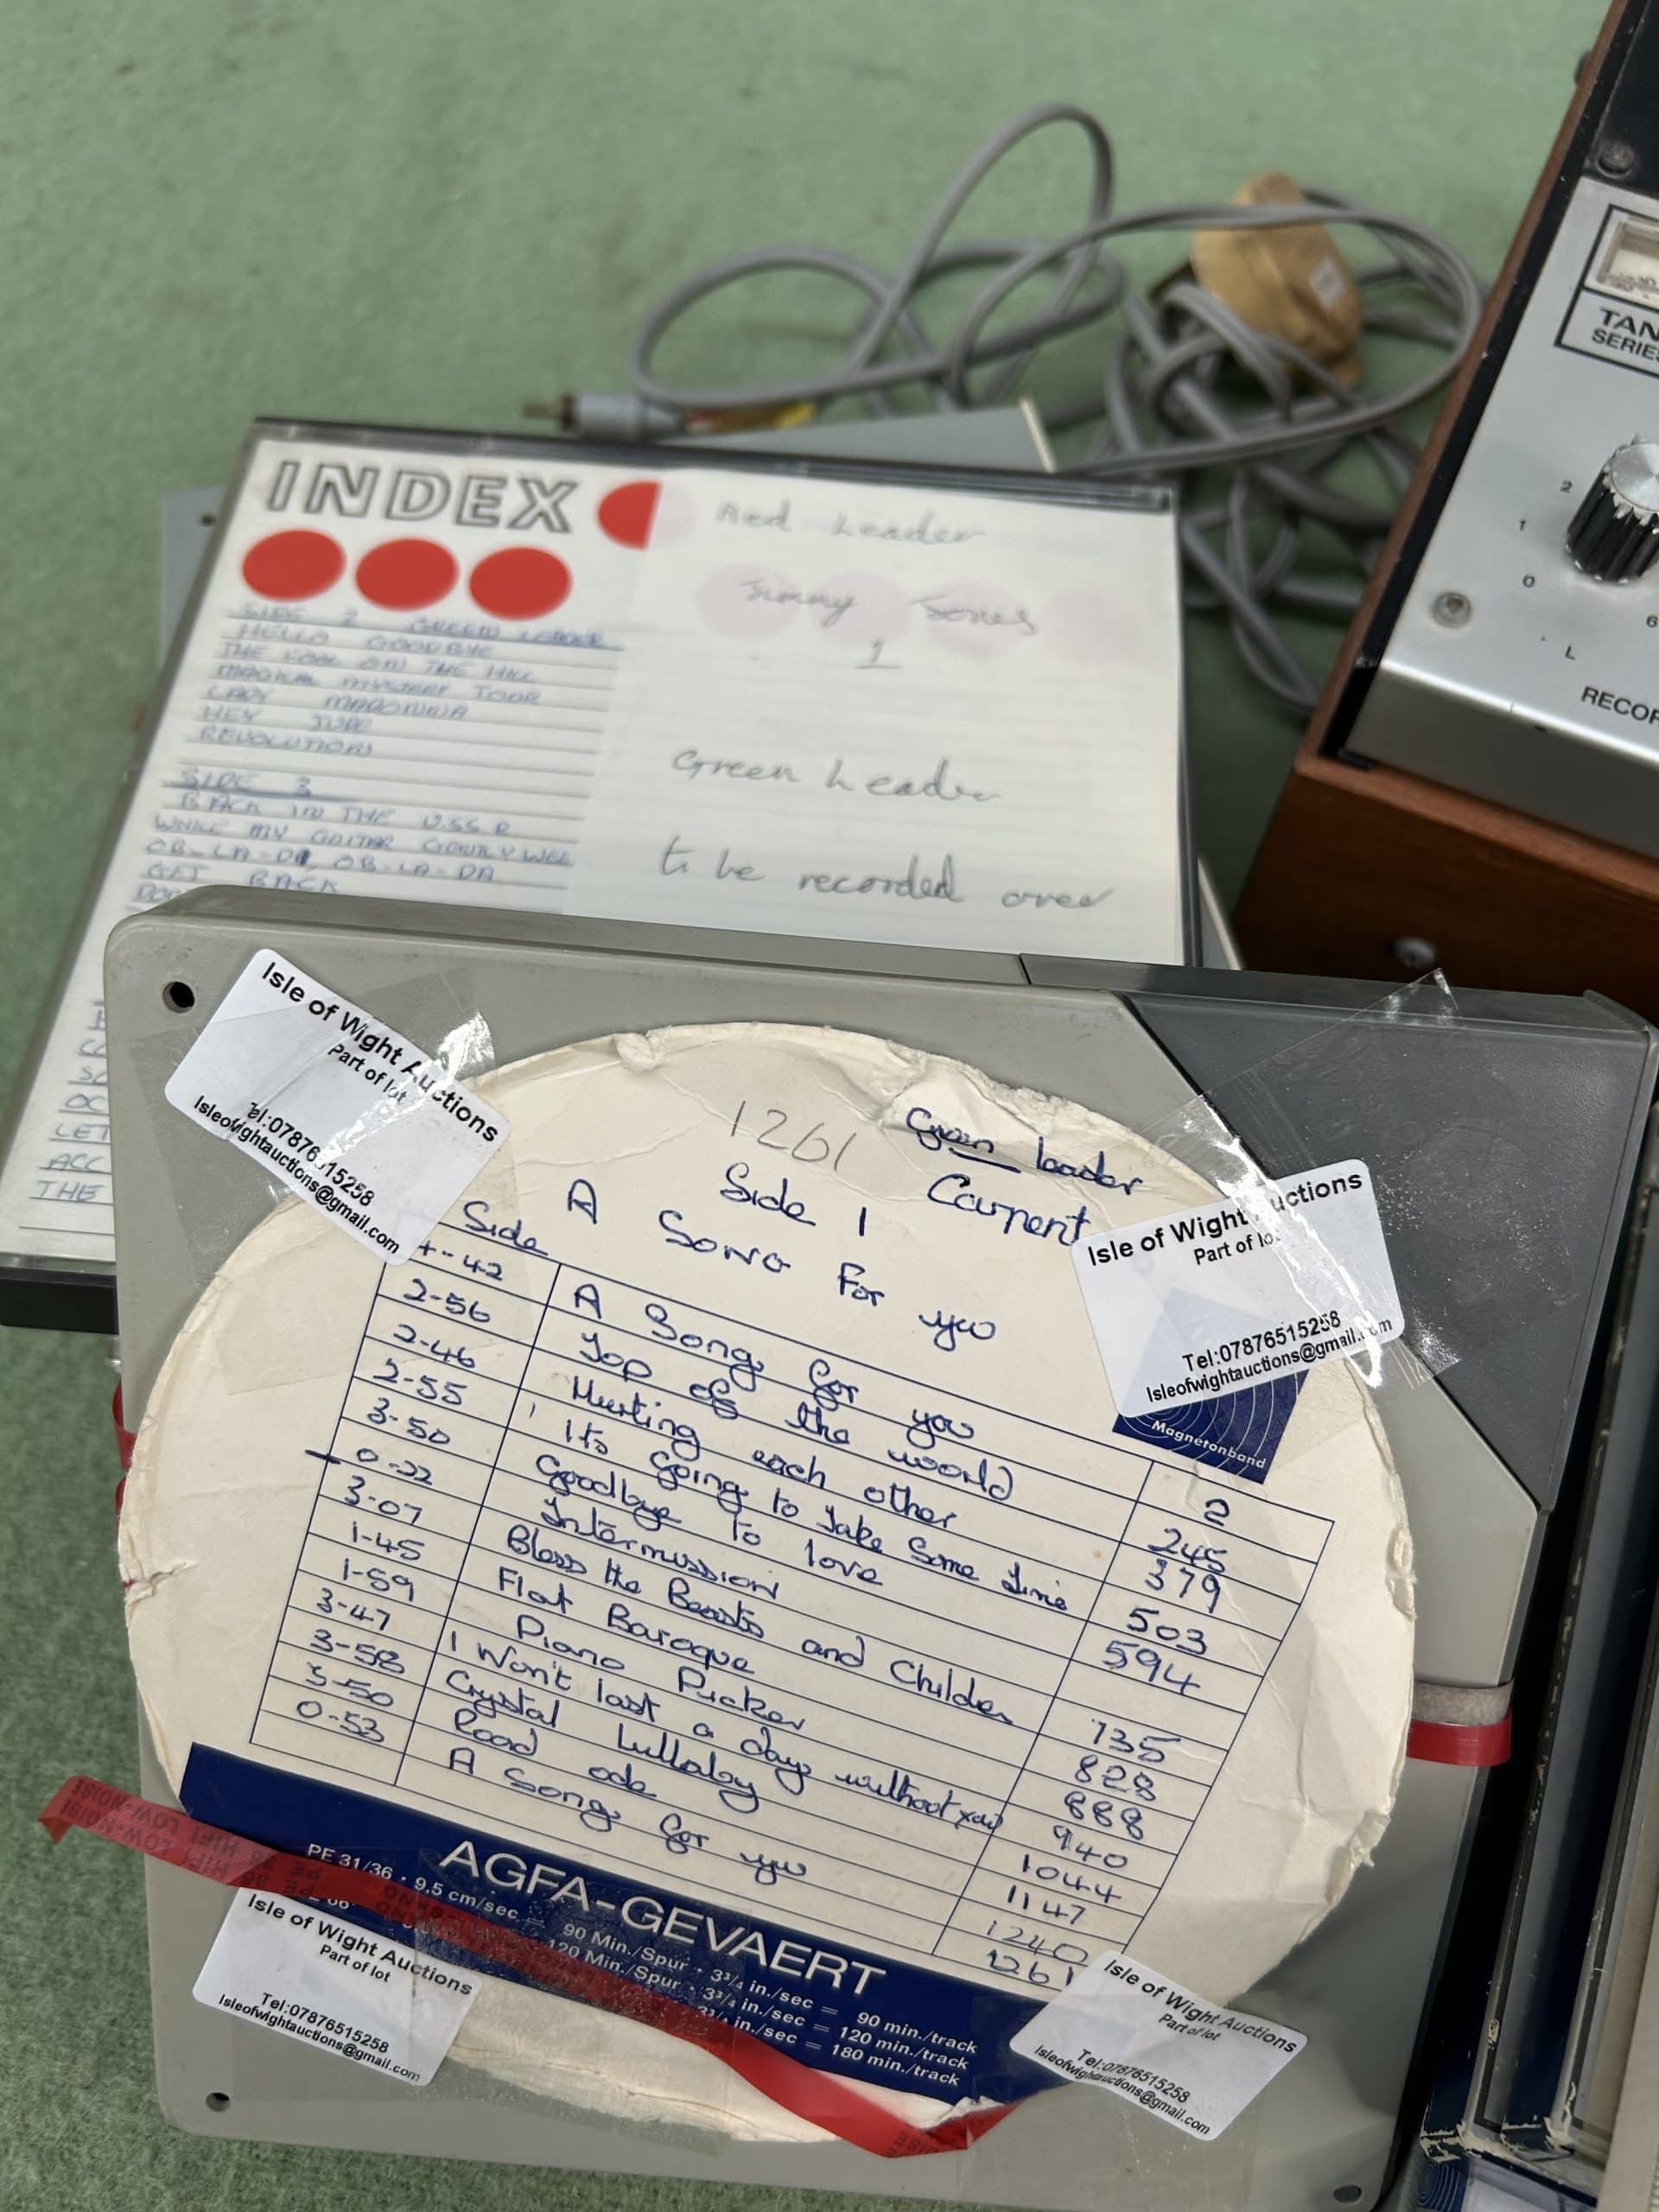 INDEX
Red Leader
Jimmy Jones
1
Green Leader
to be recorded over
SIDE 2 GREEN LEADER
HELLO GOODBYE
THE FOOL ON THE HILL
MAGICAL MYSTERY TOUR
LADY MADONNA
HEY JUDE
REVOLUTION
SIDE 3
BACK IN THE U.S.S.R
WHILE MY GUITAR GENTLY WEE
OB-LA-DI, OB-LA-DA
GET BACK
LET
ACC
THE
TAN
SERIES
2
1
0
6
L
RECOR
Isle of Wight Auctions
Part of lot
Tel:07876515258
Isleofwightauctions@gmail.com
Isle of Wight Auctions
Part of lo
Tel:07876515258
Isleofwightauctions@gmail.com
1261
Green leader
Side 1 Carpent
A Song For you
Side
4-42 A Song for you 2
2-56 Top of the world 245
2-46 Hurting each other 379
2-55 Its going to take Some time 503
3-50 Goodbye to love 594
0-22 Intermission
3-07 Bless the Beasts and Childen 735
1-45 Flat Baroque 828
1-59 Piano Picker 888
3-47 I Won't last a day without you 940
3-58 Crystal Lullaby 1044
3-50 Road ode 1147
0-53 A Song for you 1240
1261
Magnetonband
AGFA-GEVAERT
PE 31/36 · 9,5 cm/sec = 90 Min./Spur · 3¾ in./sec = 90 min./track
120 Min./Spur · 3¾ in./sec = 120 min./track
3¾ in./sec = 180 min./track
HIFI LOW-NOISE
Isle of Wight Auctions
Part of lot
Tel:07876515258
Isleofwightauctions@gmail.com
Isle of Wight Auctions
Part of lot
Tel:07876515258
Isleofwightauctions@gmail.com